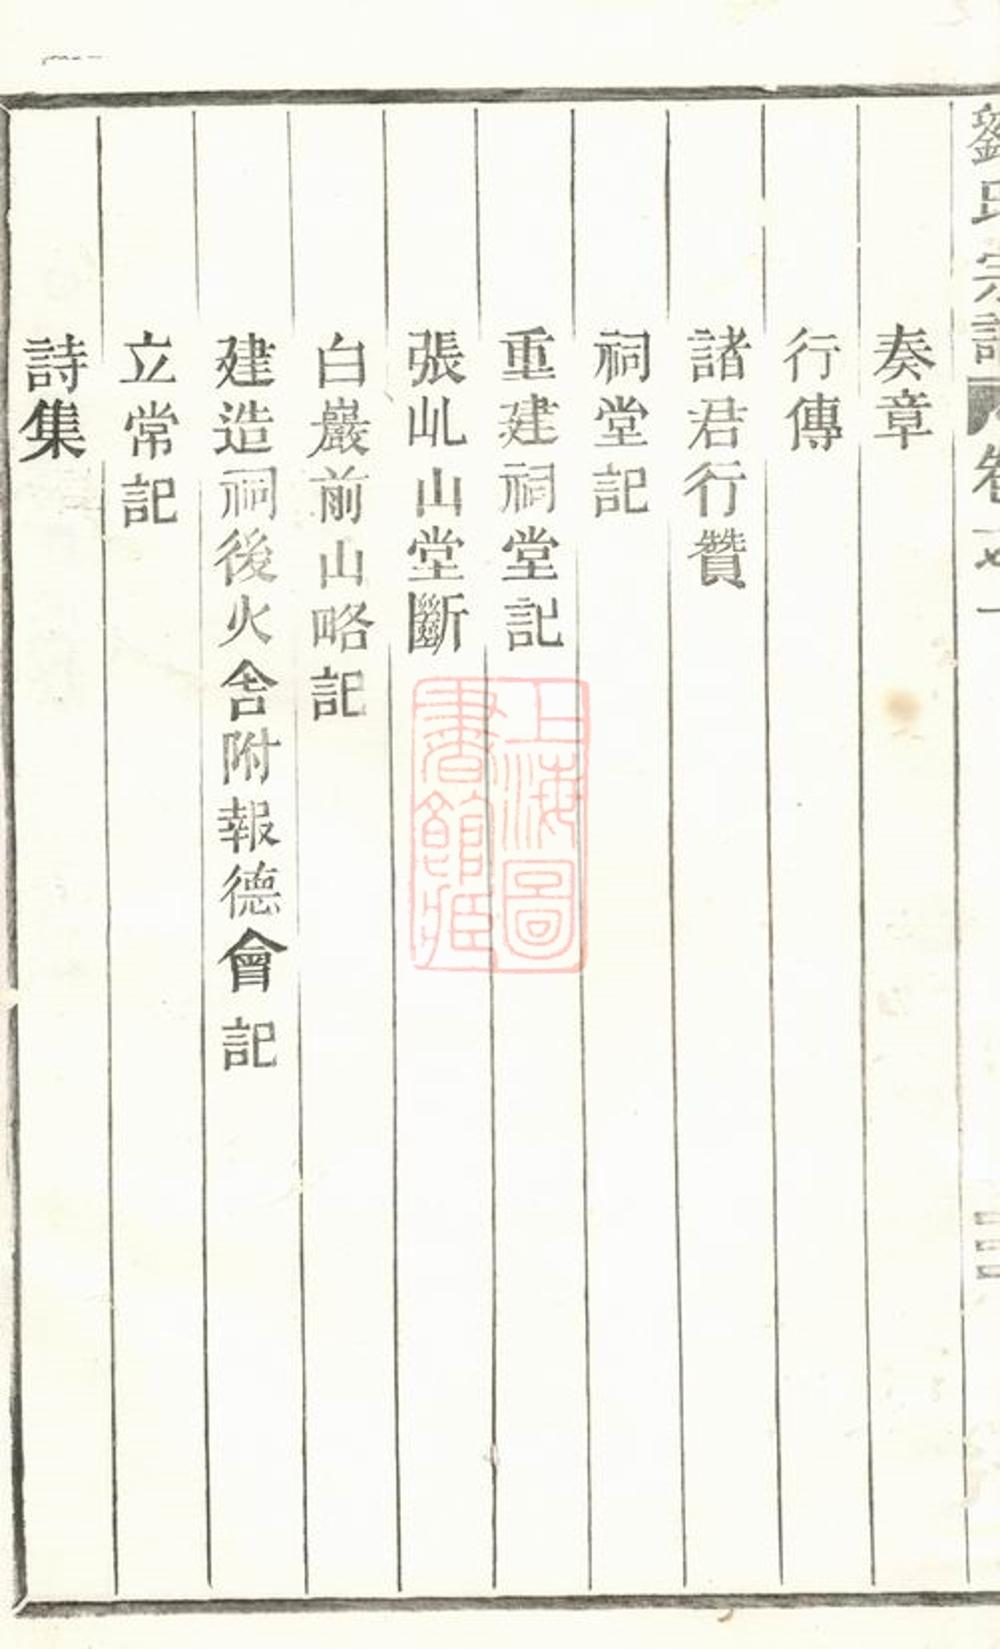 劉氏宗譜 卷之一
奏章
行傳
諸君行贊
祠堂記
重建祠堂記
張乢山堂斷
白巖前山略記
建造祠後火舍附報德會記
立常記
詩集
上海圖
書館藏